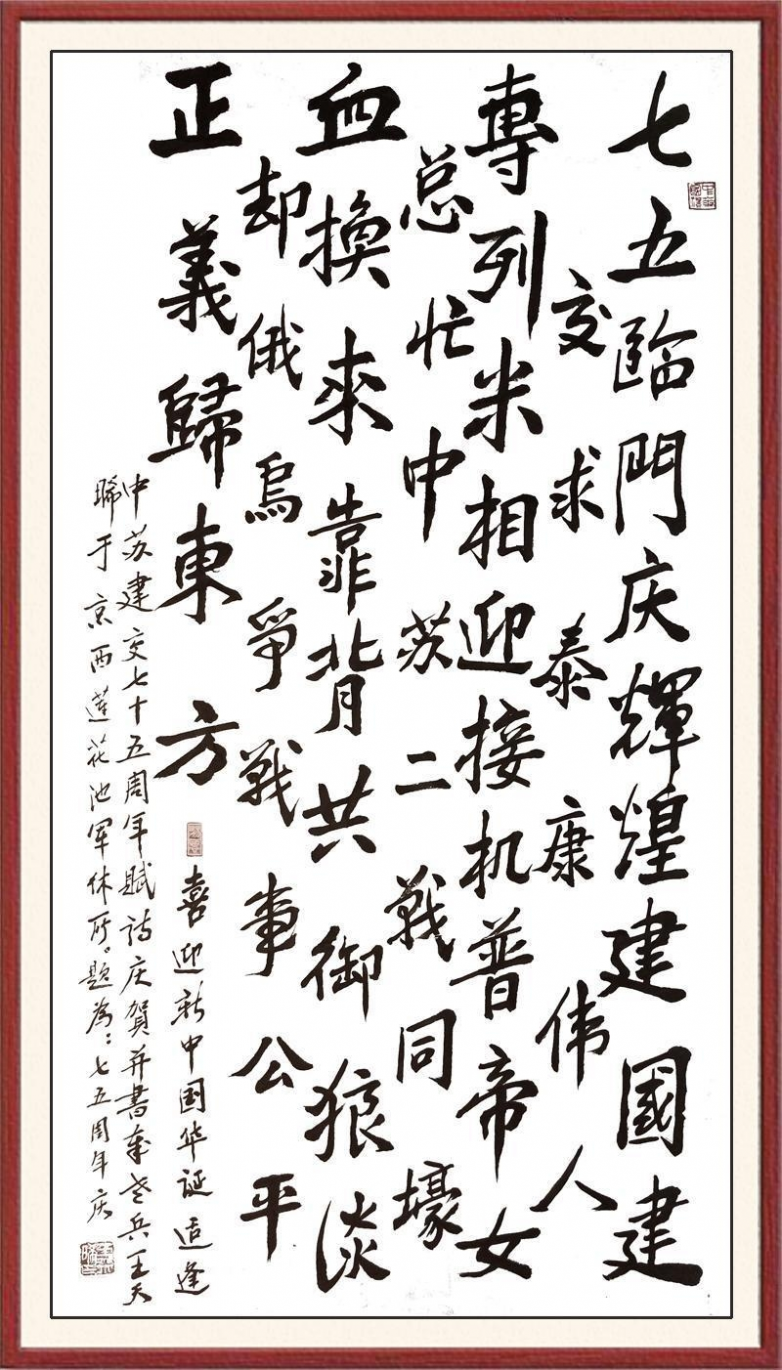 七五臨門庆輝煌建國建
交求泰康伟人
專列米相迎接机普帝女
总忙中苏二戰同壕
血換來靠背共御狼淡
却俄烏爭戰事公平
正義歸東方
喜迎新中国华诞适逢
中苏建交七十五周年賦诗庆賀并書奉老兵王天
晞于京西莲花池军休所。题為：七五周年庆